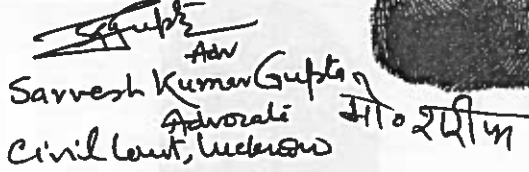 SGupta
Adv
Sarvesh Kumar Gupta,
Advocate
Civil Court, Lucknow
मो० शरीफ